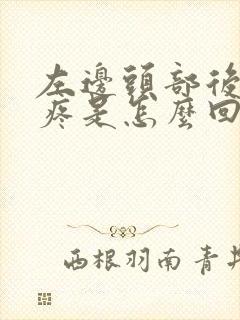 左邊頭部後
疼是怎麼回
西根羽南青